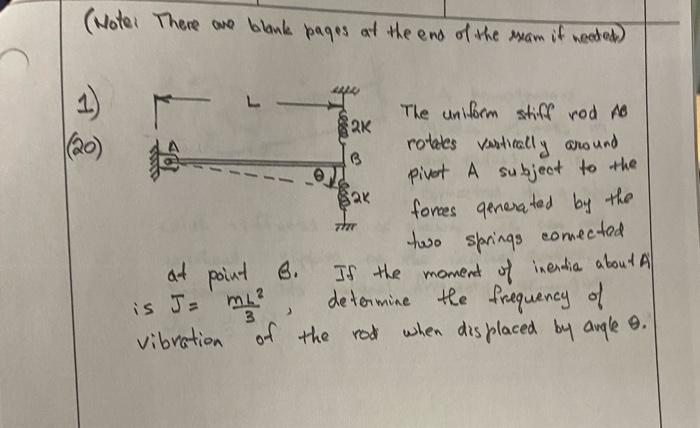 (Note: There are blank pages at the end of the exam if needed)
1)
(20)
L
2K
A
B
θ
2K
The uniform stiff rod AB
rotates vertically around
pivot A subject to the
forces generated by the
two springs connected
at point B. If the moment of inertia about A
is J = mL²/3, determine the frequency of
vibration of the rod when displaced by angle θ.